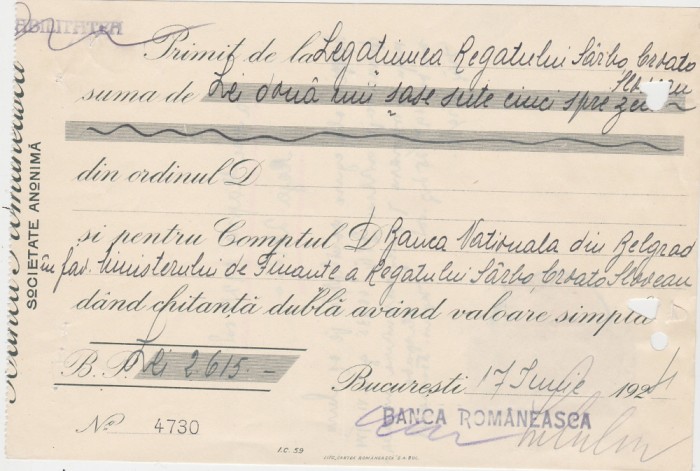 Primit de la Legatiunea Regatului Sârbo Croato
Sloveau
suma de Lei două mii șase sute cinci spre zece
din ordinul D
și pentru Comptul D Banca Nationala din Belgrad
în fav. Ministerului de Finante a Regatului Sârbo, Croato Sloveau
dând chitanță dublă având valoare simplă
B. P. Lei 2.615.-
București 17 Iunie 1924
BANCA ROMÂNEASCA
No 4730
I.C. 59
Banca Românească
SOCIETATE ANONIMĂ